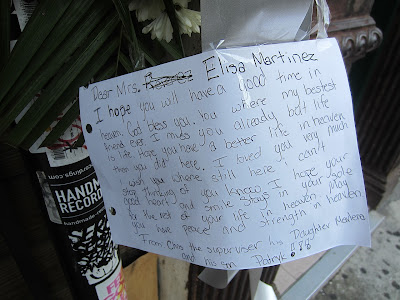 Dear Mrs. Elisa Martinez
I hope you will have a good time in
heaven. God bless you. You where my bestest
friend ever. I miss you already but life
is life. Hope you have a better life in heaven
than you did here. I loved you very much
wish you where still here I can't
stop thinking of you know I hope your
good heart and smile stays in your sole
for the rest of your life in heaven. May
you have peace and strength in heaven
From Chris the superuser his Daughter
and his son Patryk!!!
HANDM
RECORD
handmade-